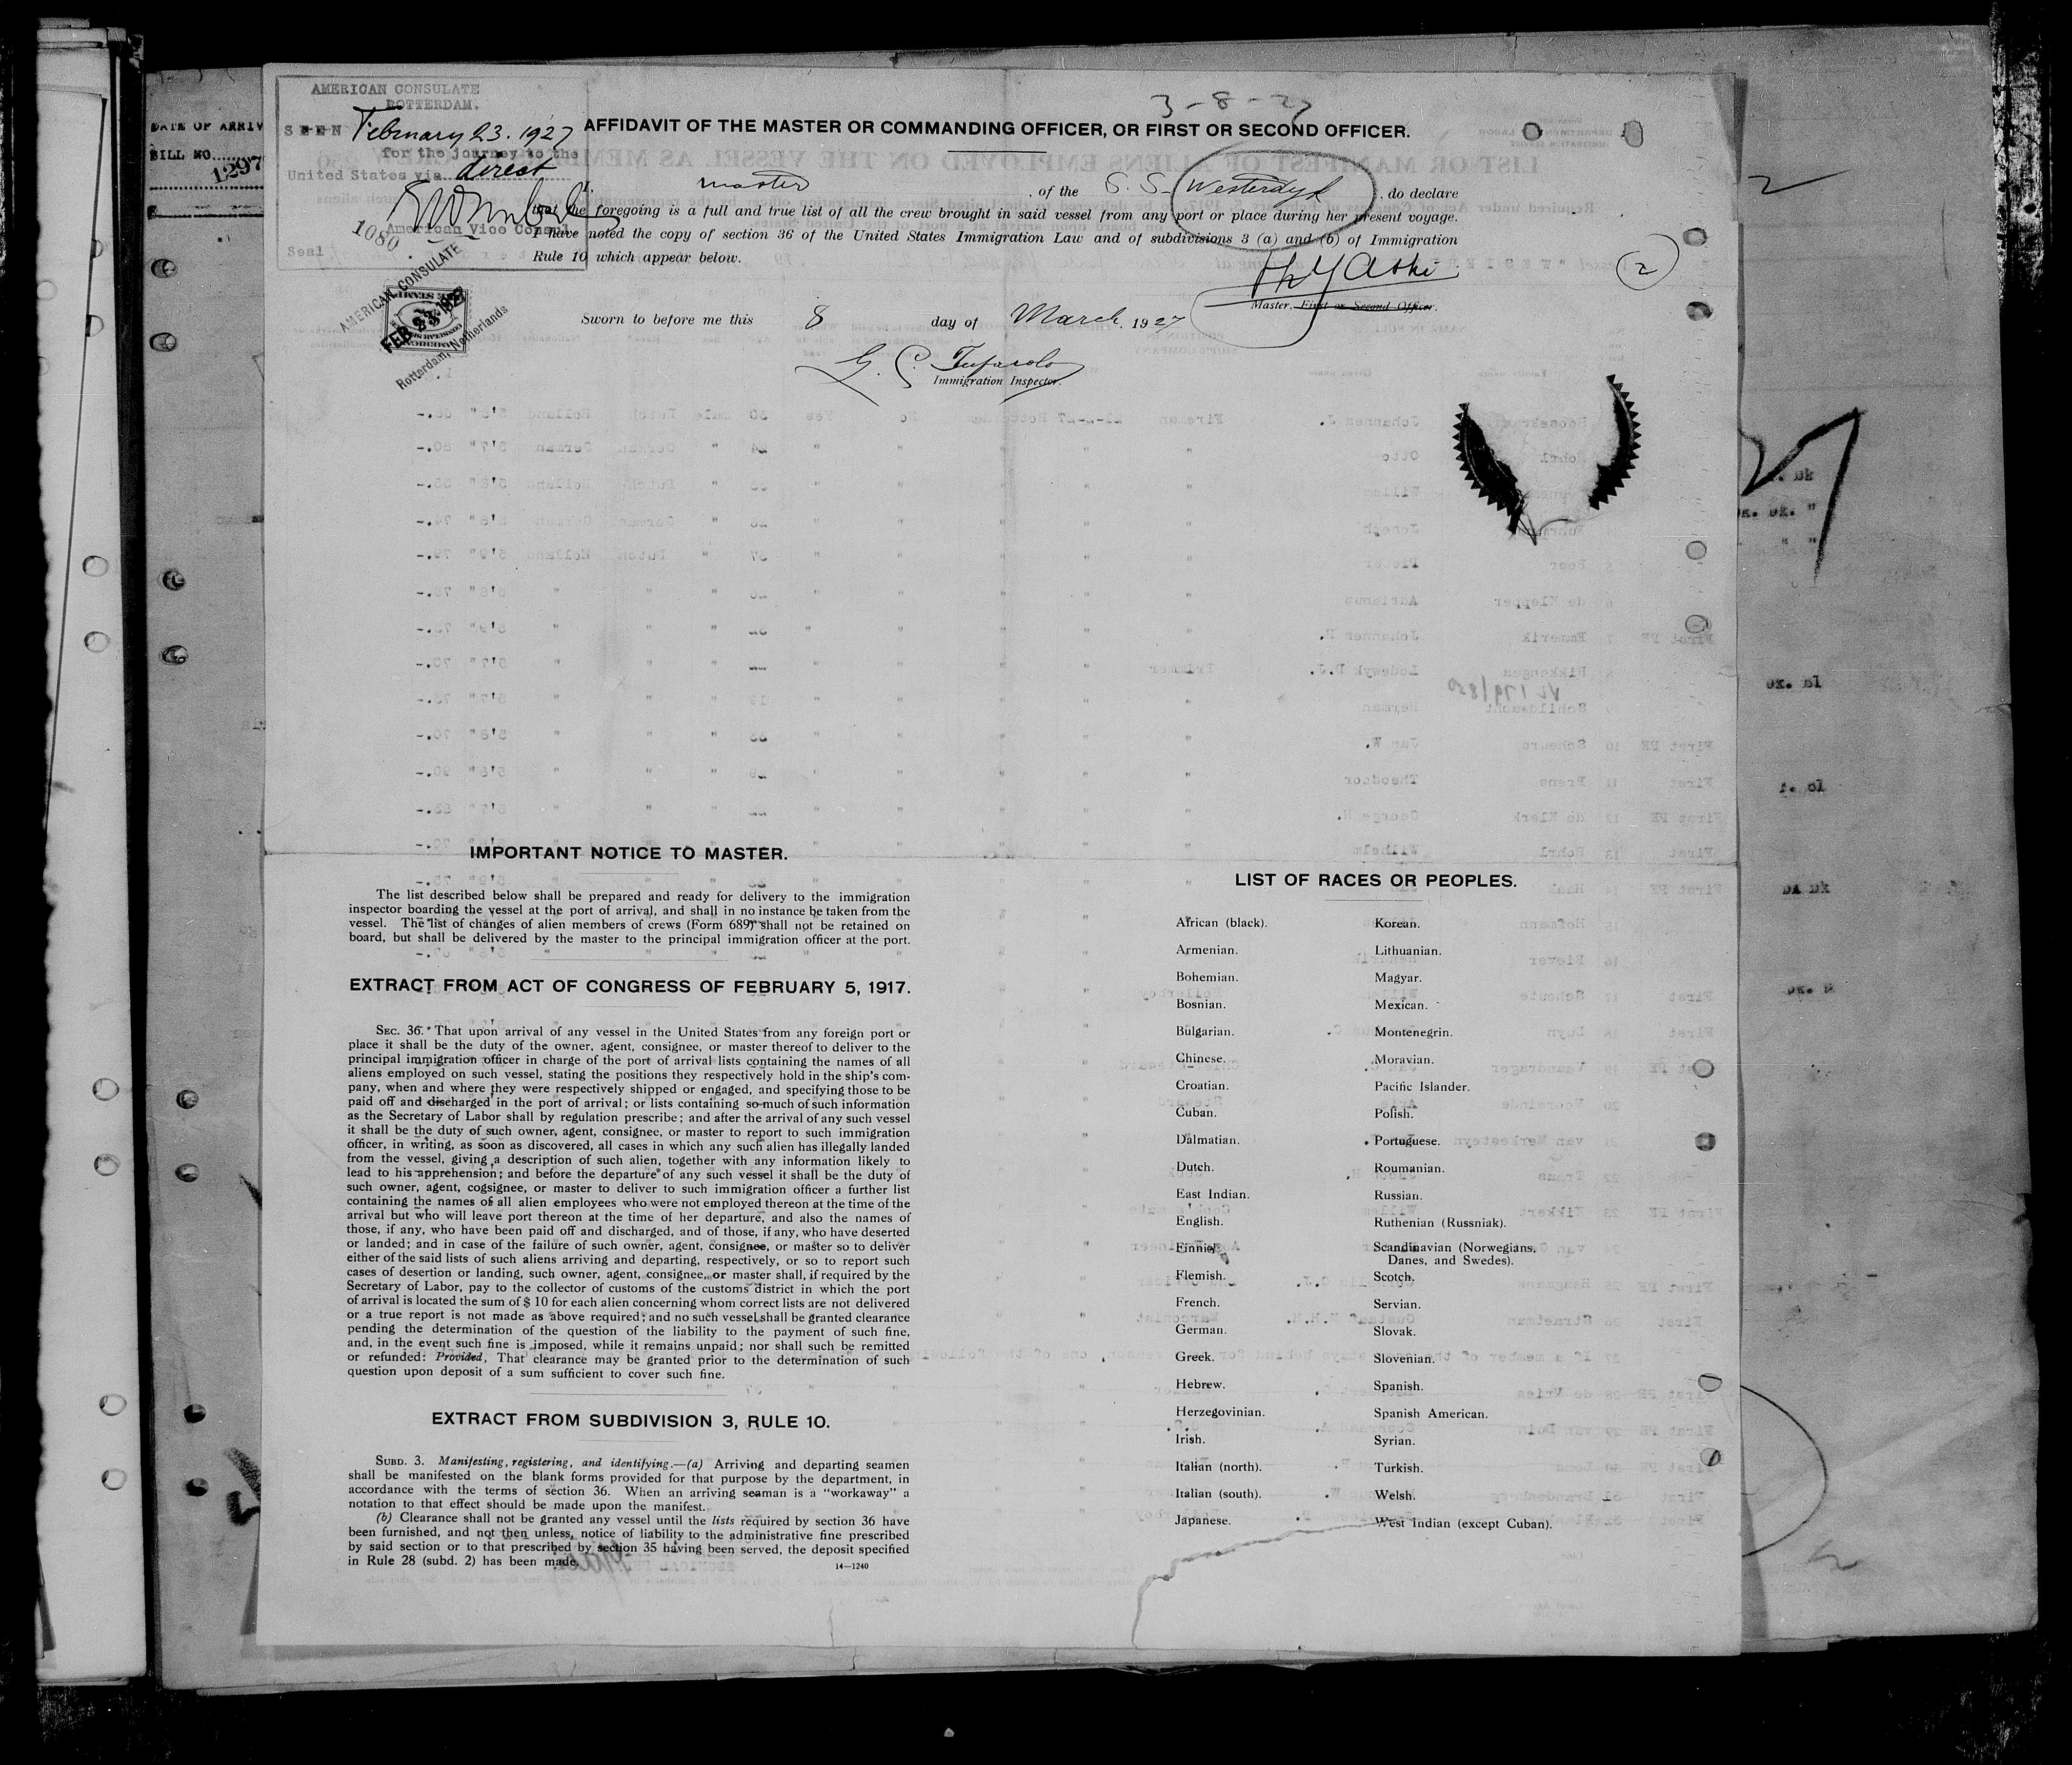 3-8-27
AMERICAN CONSULATE
ROTTERDAM.
SEEN February 23. 1927
for the journey to the
United States via direct
American Vice Consul
Seal
1080
AMERICAN CONSULATE
FEB 23 1927
Rotterdam, Netherlands
DATE OF ARRIV
BILL NO.
1297
AFFIDAVIT OF THE MASTER OR COMMANDING OFFICER, OR FIRST OR SECOND OFFICER.
master, of the S. S. Westerdyk, do declare
that the foregoing is a full and true list of all the crew brought in said vessel from any port or place during her present voyage.
I have noted the copy of section 36 of the United States Immigration Law and of subdivisions 3 (a) and (b) of Immigration
Rule 10 which appear below.
2
Master, First or Second Officer.
Sworn to before me this 8 day of March, 1927
Immigration Inspector.
IMPORTANT NOTICE TO MASTER.
The list described below shall be prepared and ready for delivery to the immigration
inspector boarding the vessel at the port of arrival, and shall in no instance be taken from the
vessel. The list of changes of alien members of crews (Form 689) shall not be retained on
board, but shall be delivered by the master to the principal immigration officer at the port.
EXTRACT FROM ACT OF CONGRESS OF FEBRUARY 5, 1917.
SEC. 36. That upon arrival of any vessel in the United States from any foreign port or
place it shall be the duty of the owner, agent, consignee, or master thereof to deliver to the
principal immigration officer in charge of the port of arrival lists containing the names of all
aliens employed on such vessel, stating the positions they respectively hold in the ship's com-
pany, when and where they were respectively shipped or engaged, and specifying those to be
paid off and discharged in the port of arrival; or lists containing so much of such information
as the Secretary of Labor shall by regulation prescribe; and after the arrival of any such vessel
it shall be the duty of such owner, agent, consignee, or master to report to such immigration
officer, in writing, as soon as discovered, all cases in which any such alien has illegally landed
from the vessel, giving a description of such alien, together with any information likely to
lead to his apprehension; and before the departure of any such vessel it shall be the duty of
such owner, agent, cogsignee, or master to deliver to such immigration officer a further list
containing the names of all alien employees who were not employed thereon at the time of the
arrival but who will leave port thereon at the time of her departure, and also the names of
those, if any, who have been paid off and discharged, and of those, if any, who have deserted
or landed; and in case of the failure of such owner, agent, consignee, or master so to deliver
either of the said lists of such aliens arriving and departing, respectively, or so to report such
cases of desertion or landing, such owner, agent, consignee, or master shall, if required by the
Secretary of Labor, pay to the collector of customs of the customs district in which the port
of arrival is located the sum of $ 10 for each alien concerning whom correct lists are not delivered
or a true report is not made as above required; and no such vessel shall be granted clearance
pending the determination of the question of the liability to the payment of such fine,
and, in the event such fine is imposed, while it remains unpaid; nor shall such be remitted
or refunded: Provided, That clearance may be granted prior to the determination of such
question upon deposit of a sum sufficient to cover such fine.
EXTRACT FROM SUBDIVISION 3, RULE 10.
SUBD. 3. Manifesting, registering, and identifying.—(a) Arriving and departing seamen
shall be manifested on the blank forms provided for that purpose by the department, in
accordance with the terms of section 36. When an arriving seaman is a "workaway" a
notation to that effect should be made upon the manifest.
(b) Clearance shall not be granted any vessel until the lists required by section 36 have
been furnished, and not then unless, notice of liability to the administrative fine prescribed
by said section or to that prescribed by section 35 having been served, the deposit specified
in Rule 28 (subd. 2) has been made.
14—1240
LIST OF RACES OR PEOPLES.
African (black).
Armenian.
Bohemian.
Bosnian.
Bulgarian.
Chinese.
Croatian.
Cuban.
Dalmatian.
Dutch.
East Indian.
English.
Finnish.
Flemish.
French.
German.
Greek.
Hebrew.
Herzegovinian.
Irish.
Italian (north).
Italian (south).
Japanese.
Korean.
Lithuanian.
Magyar.
Mexican.
Montenegrin.
Moravian.
Pacific Islander.
Polish.
Portuguese.
Roumanian.
Russian.
Ruthenian (Russniak).
Scandinavian (Norwegians,
Danes, and Swedes).
Scotch.
Servian.
Slovak.
Slovenian.
Spanish.
Spanish American.
Syrian.
Turkish.
Welsh.
West Indian (except Cuban).